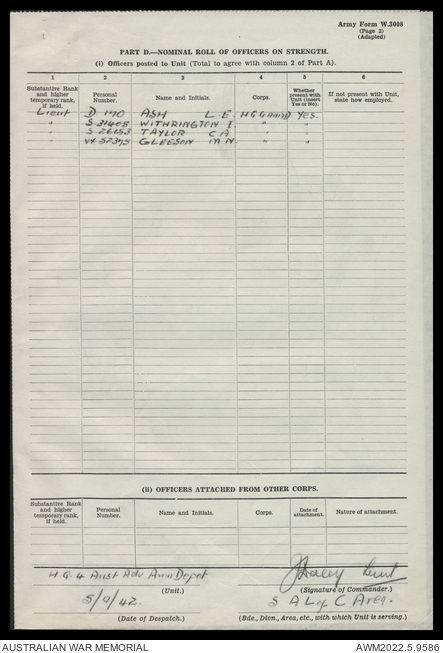 Army Form W.3008
(Page 2)
(Adapted)
PART D.—NOMINAL ROLL OF OFFICERS ON STRENGTH.
(i) Officers posted to Unit (Total to agree with column 2 of Part A).
1 2 3 4 5 6
Substantive Rank and higher temporary rank, if held. Personal Number. Name and Initials. Corps. Whether present with Unit (insert Yes or No). If not present with Unit, state how employed.
Lieut D ASH L.E. YES.
" S 31408 WITHRINGTON I. " "
" S.26153 TAYLOR C A. " "
" VX 52395 GLEESON M.N. " "
(ii) OFFICERS ATTACHED FROM OTHER CORPS.
Substantive Rank and higher temporary rank, if held. Personal Number. Name and Initials. Corps. Date of attachment. Nature of attachment.
H.Q. 4 Aust Adv Amn Depot
(Unit.)
Lieut
(Signature of Commander.)
5/9/42.
(Date of Despatch.)
S A L of C Area.
(Bde., Divn., Area, etc., with which Unit is serving.)
AUSTRALIAN WAR MEMORIAL
AWM2022.5.9586